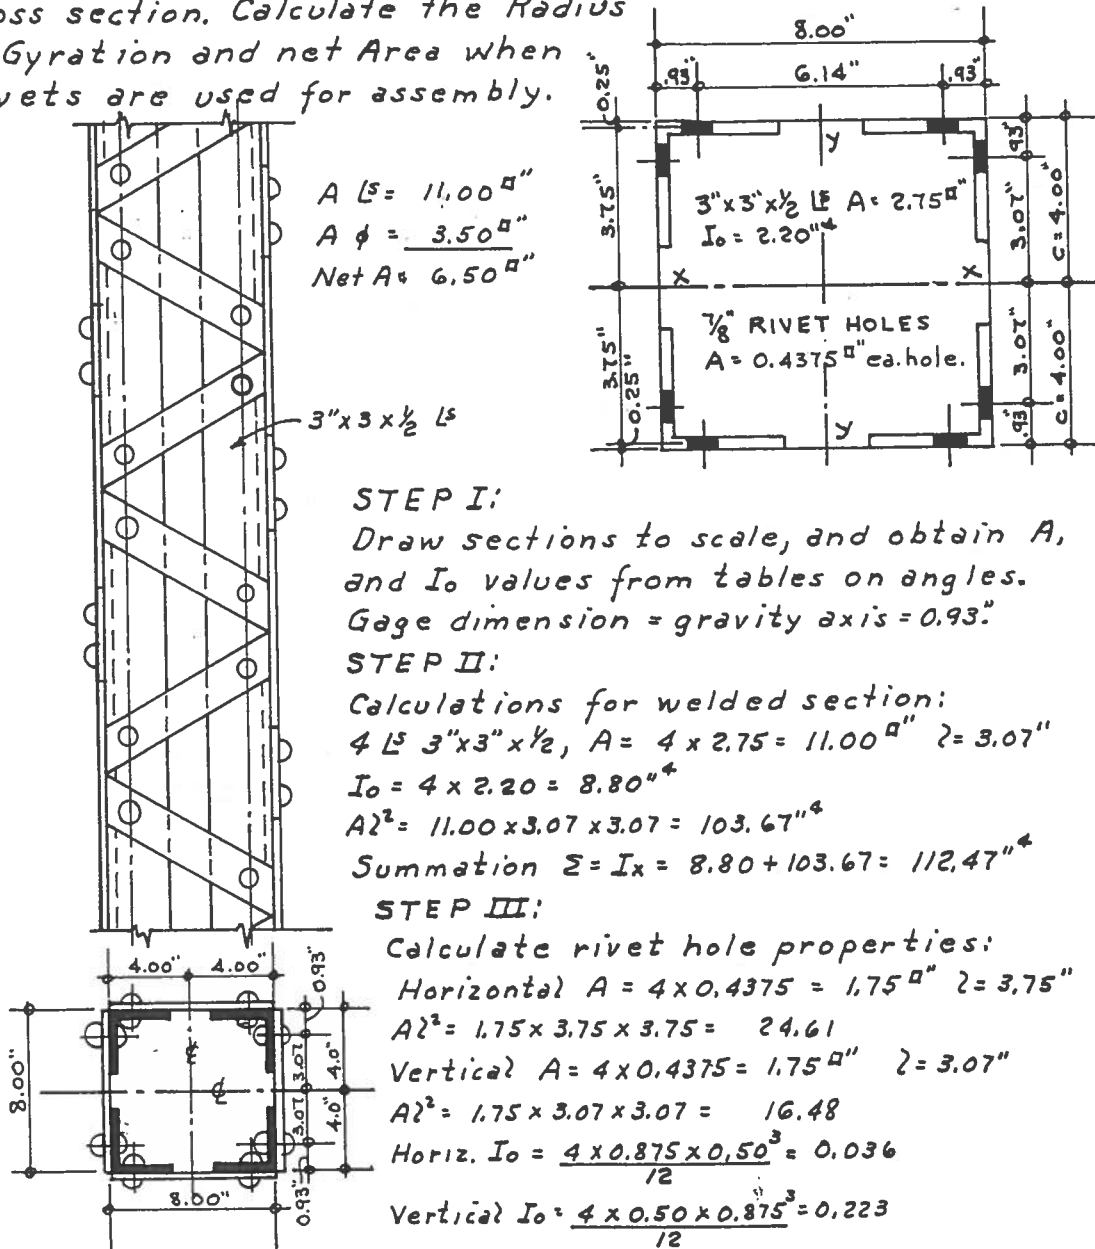 oss section. Calculate the Radius
Gyration and net Area when
vets are used for assembly.
A Ls = 11.00 □"
A ϕ = 3.50 □"
Net A = 6.50 □"
3" x 3 x 1/2 Ls
8.00"
.93" 6.14" .93"
0.25"
3.75"
3.75"
0.25"
Y
3"x3"x1/2 Ls A = 2.75 □"
I₀ = 2.20"⁴
X X
7/8" RIVET HOLES
A = 0.4375 □" ea. hole.
Y
.93"
3.07"
3.07"
.93"
C = 4.00"
C = 4.00"
STEP I:
Draw sections to scale, and obtain A,
and I₀ values from tables on angles.
Gage dimension = gravity axis = 0.93".
STEP II:
Calculations for welded section:
4 Ls 3"x3"x1/2, A = 4 x 2.75 = 11.00 □" l = 3.07"
I₀ = 4 x 2.20 = 8.80"⁴
Al² = 11.00 x 3.07 x 3.07 = 103.67"⁴
Summation Σ = Ix = 8.80 + 103.67 = 112.47"⁴
STEP III:
Calculate rivet hole properties:
Horizontal A = 4 x 0.4375 = 1.75 □" l = 3.75"
Al² = 1.75 x 3.75 x 3.75 = 24.61
Vertical A = 4 x 0.4375 = 1.75 □" l = 3.07"
Al² = 1.75 x 3.07 x 3.07 = 16.48
Horiz. I₀ = 4 x 0.875 x 0.50³ / 12 = 0.036
Vertical I₀ = 4 x 0.50 x 0.875³ / 12 = 0.223
4.00" 4.00"
0.93"
8.00"
℄
℄
3.07 4.0"
3.07 4.0"
0.93"
8.00"